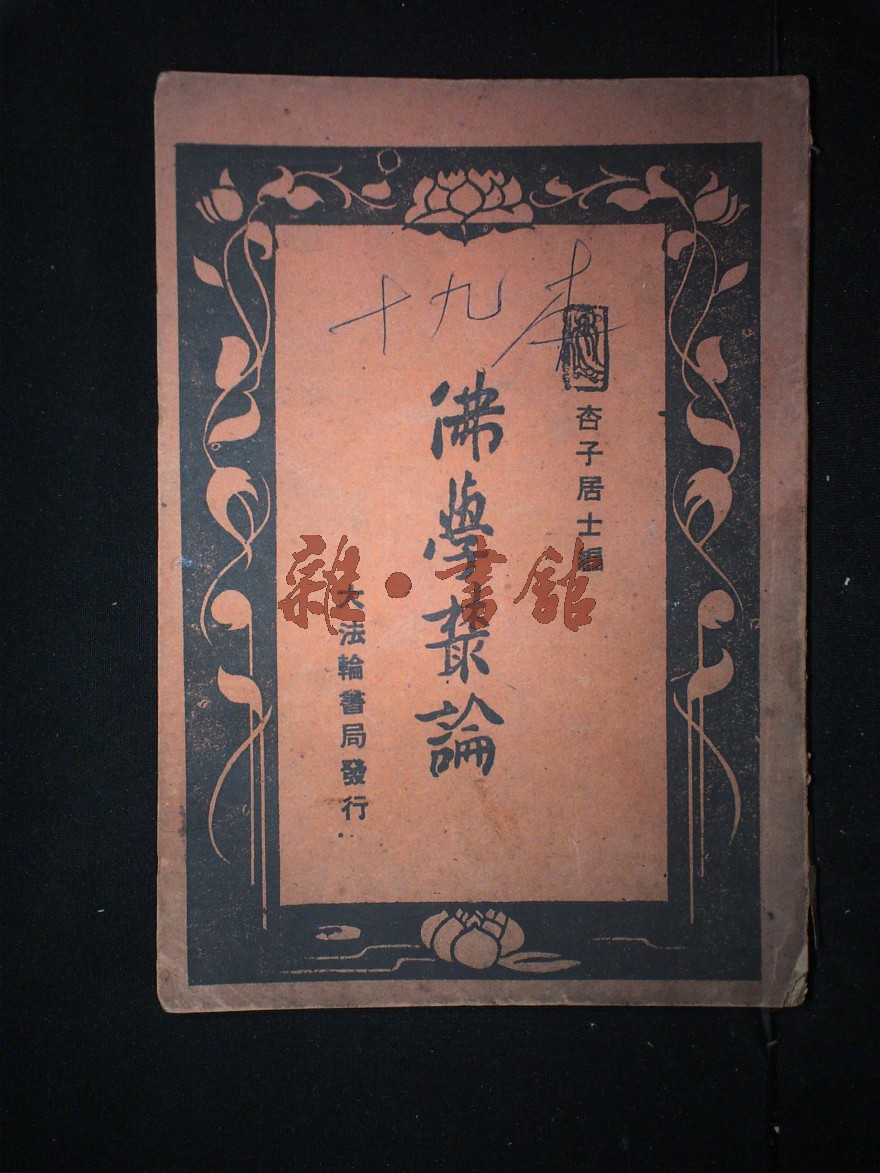 十九本
杏子居士編
佛學叢論
大法輪書局發行
雜·書館